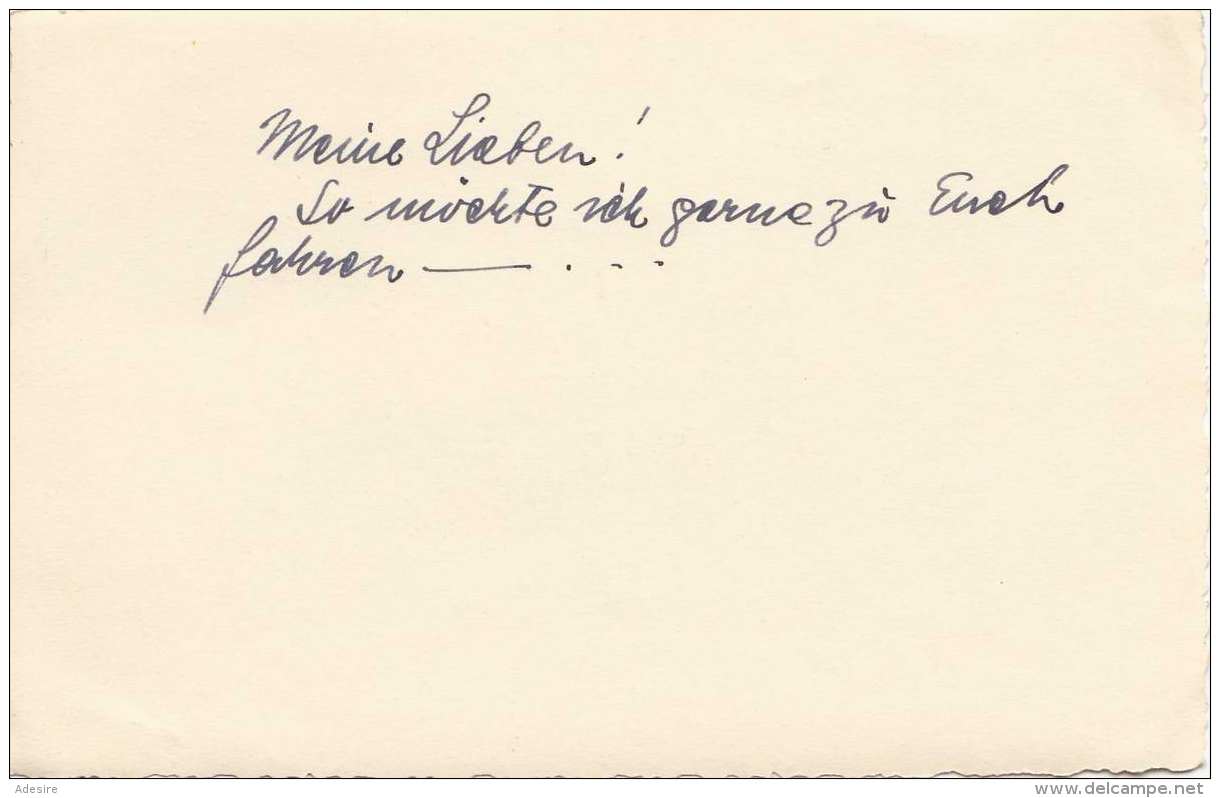 Meine Lieben!
So möchte ich gerne zu Euch
fahren — . - - ..
Adesire
www.delcampe.net